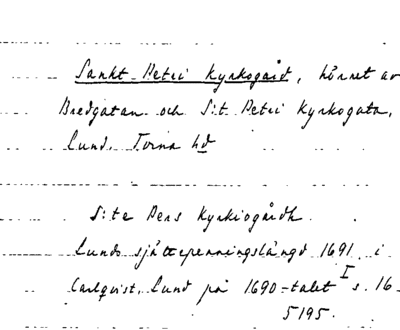 Sankt Petri Kyrkogård, hörnet av
Bredgatan och S:t Petri Kyrkogata,
Lund. Torna hd
S:te Pers Kyrkiogårdh.
Lunds sjättepenningslängd 1691 i
Carlquist. Lund på 1690-talet I s. 16-
5195.